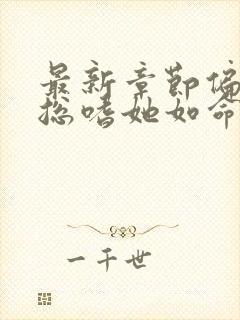 最新章节偏
总嗜她如命
一千世